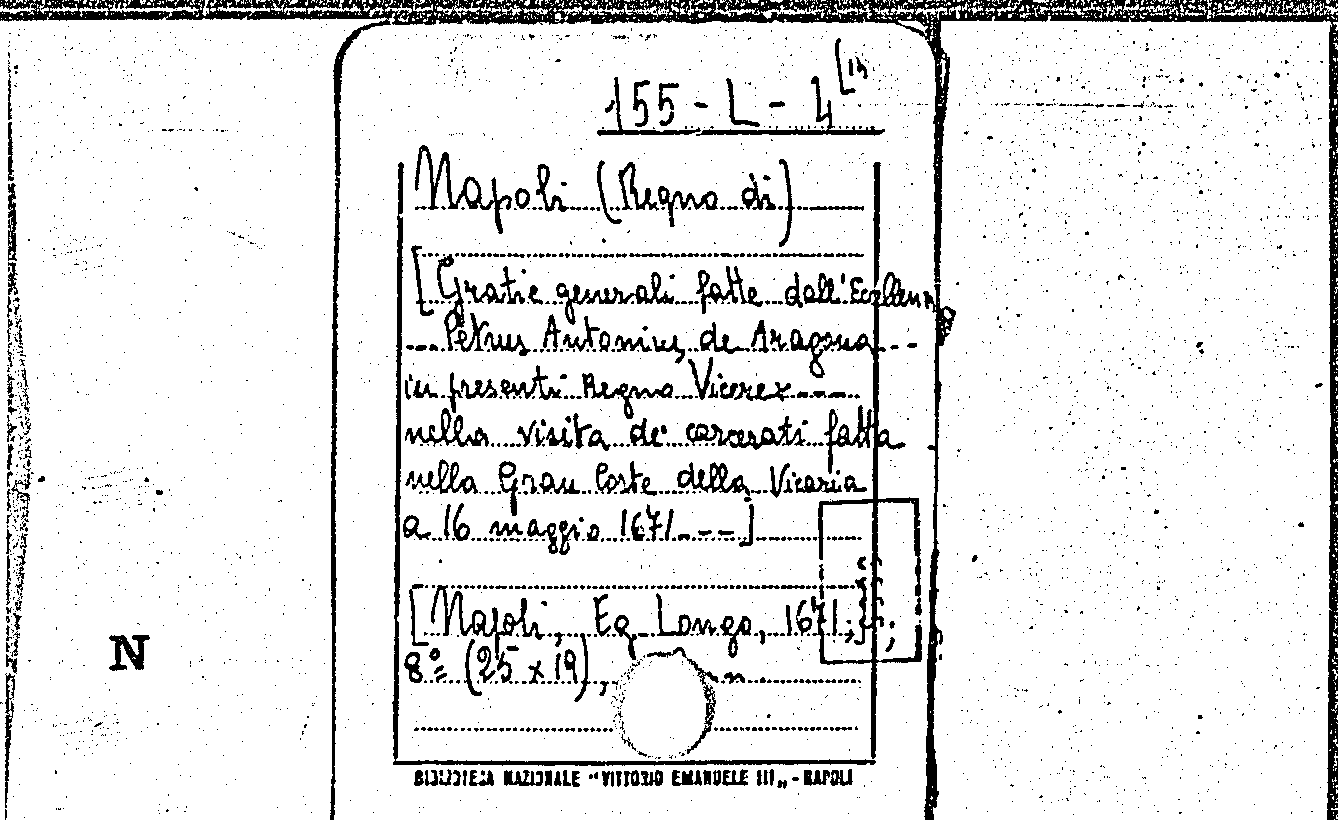 155 - L - 4 [15
Napoli (Regno di)
[Gratie generali fatte dall'Eccellenza
--- Petrus Antonius de Aragona ---
in presenti Regno Vicerex ----
nella visita de' carcerati fatta
nella Gran Corte della Vicaria
a 16 maggio 1671 ---]
[Napoli, Eg. Longo, 1671];
8º (25 x 19),
N
BIBLIOTECA NAZIONALE "VITTORIO EMANUELE III" - NAPOLI